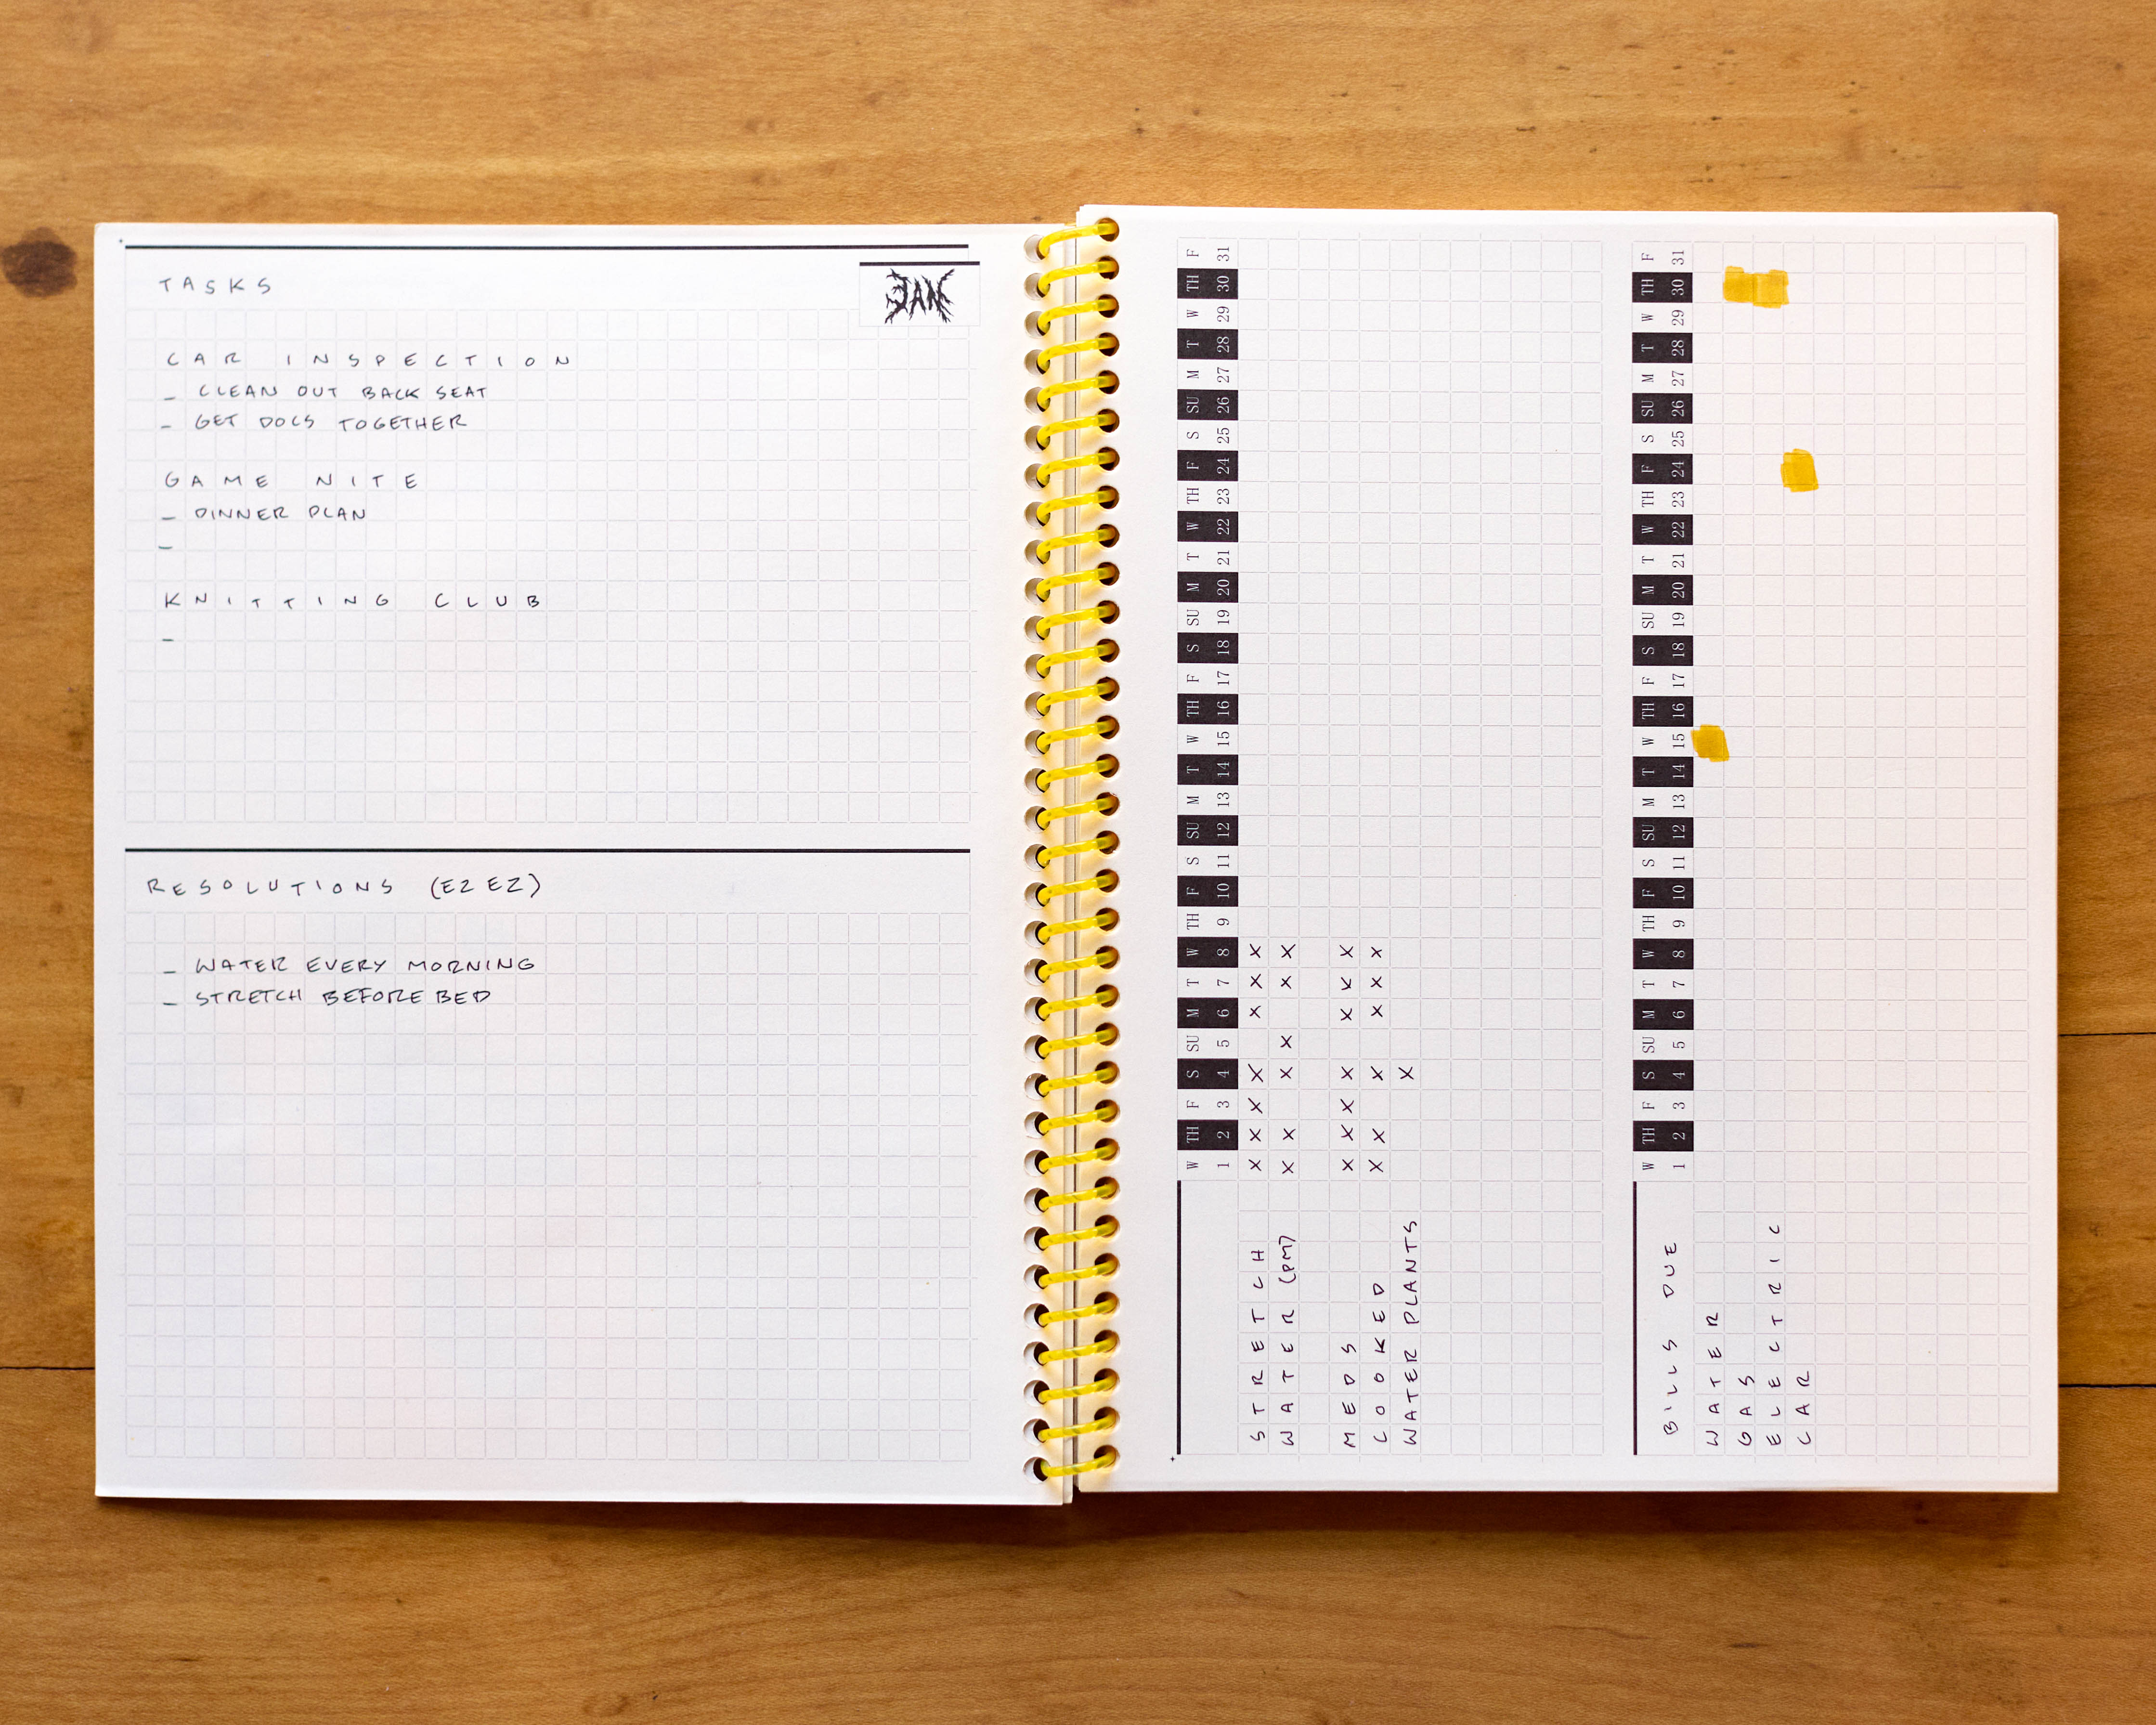 TASKS
JAN
CAR INSPECTION
- CLEAN OUT BACK SEAT
- GET DOCS TOGETHER
GAME NITE
- DINNER PLAN
-
KNITTING CLUB
-
RESOLUTIONS (EZ EZ)
- WATER EVERY MORNING
- STRETCH BEFORE BED
W TH F S SU M T W TH F S SU M T W TH F S SU M T W TH F S SU M T W TH F
1 2 3 4 5 6 7 8 9 10 11 12 13 14 15 16 17 18 19 20 21 22 23 24 25 26 27 28 29 30 31
STRETCH X X X X X X X
WATER (PM) X X X X X X
MEDS X X X X X X X
COOKED X X X X X X
WATER PLANTS X
W TH F S SU M T W TH F S SU M T W TH F S SU M T W TH F S SU M T W TH F
BILLS DUE 1 2 3 4 5 6 7 8 9 10 11 12 13 14 15 16 17 18 19 20 21 22 23 24 25 26 27 28 29 30 31
WATER
GAS
ELECTRIC
CAR